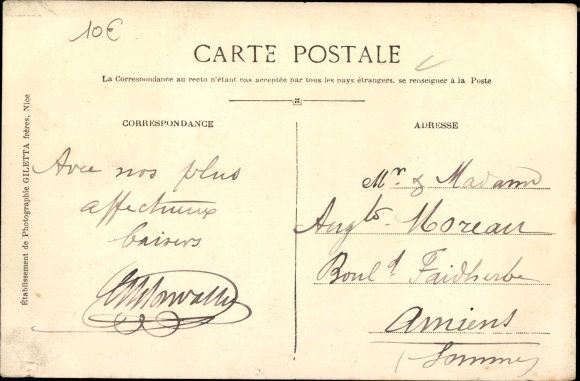 10€
CARTE POSTALE
La Correspondance au recto n'étant pas acceptée par tous les pays étrangers, se renseigner à la Poste
CORRESPONDANCE
Avec nos plus
affectueux
baisers
ADRESSE
Mr & Madame
Aug^te Moreau
Boul^d Faidherbe
Amiens
(Somme)
Établissement de Photographie GILETTA frères, Nice